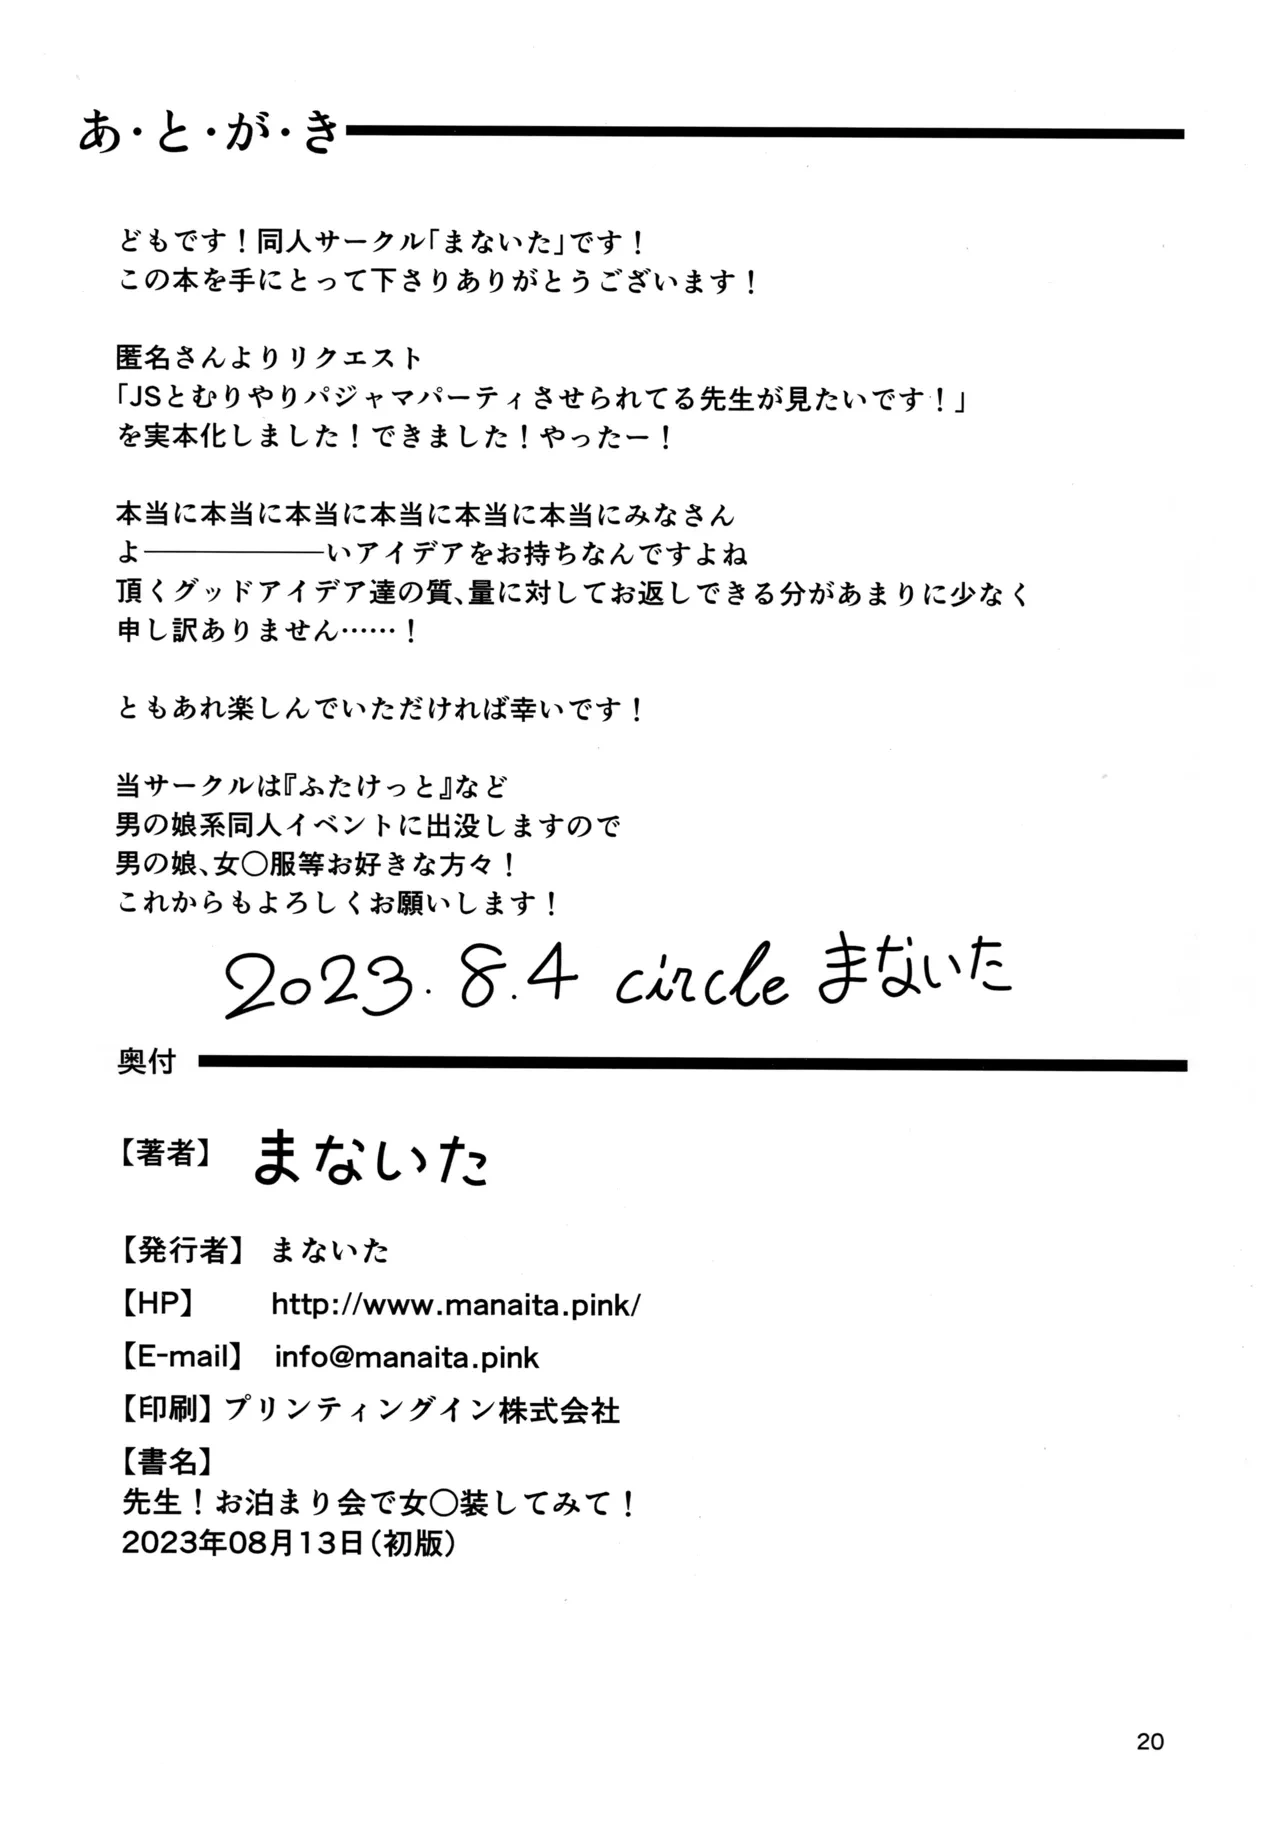 あ・と・が・き
どもです！同人サークル「まないた」です！
この本を手にとって下さりありがとうございます！
匿名さんよりリクエスト
「JSとむりやりパジャマパーティさせられてる先生が見たいです！」
を実本化しました！できました！やったー！
本当に本当に本当に本当に本当に本当にみなさん
よ――――――いアイデアをお持ちなんですよね
頂くグッドアイデア達の質、量に対してお返しできる分があまりに少なく
申し訳ありません……！
ともあれ楽しんでいただければ幸いです！
当サークルは『ふたけっと』など
男の娘系同人イベントに出没しますので
男の娘、女〇服等お好きな方々！
これからもよろしくお願いします！
2023.8.4 circle まないた
奥付
【著者】 まないた
【発行者】 まないた
【HP】 http://www.manaita.pink/
【E-mail】 info@manaita.pink
【印刷】プリンティングイン株式会社
【書名】
先生！お泊まり会で女〇装してみて！
2023年08月13日（初版）
20